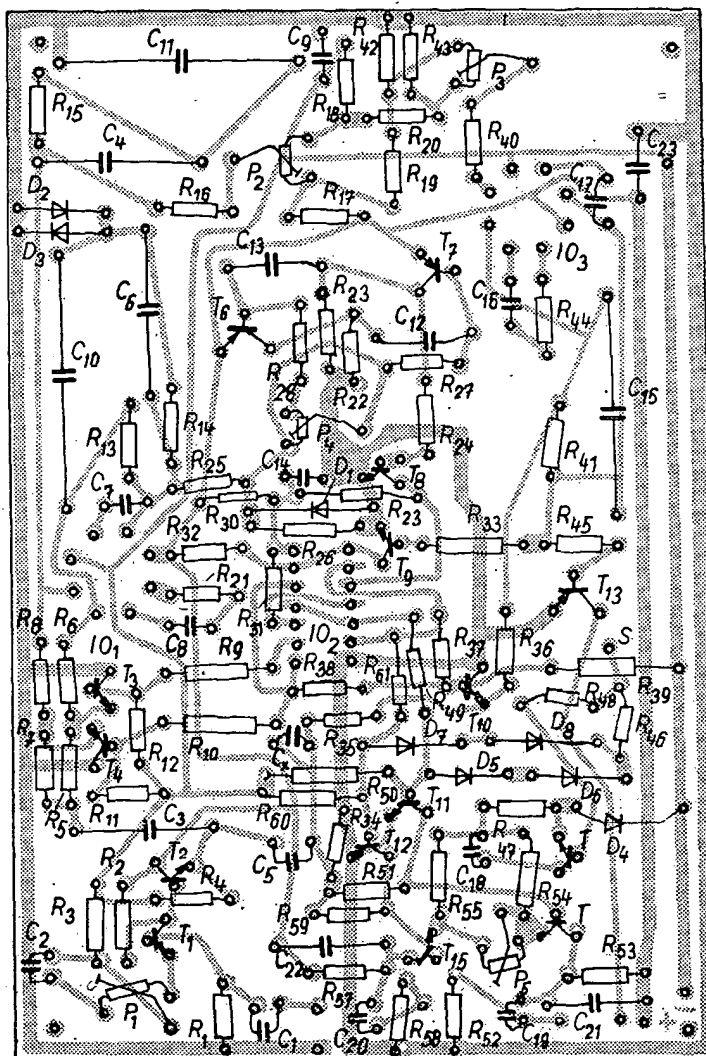 C11 C9 R42 R43 P3
R15 R18
C4 P2 R20 R40 C23
R19 C17
D2 R16 R17
D3 C13 T7 IO3
C6 T6 R23 C12 C16 R44
C10 R28 R22 R27 C15
R13 R14 P4 R24 R41
R25 C14 D1 T8
C7 R30 R23
R32 R26 T9 R33 R45
R21 T13
R8 R6 R31
IO1 C8 R9 IO2 R37 R36 S
T3 R38 R61 R49 T10 R48 R39
R7 T4 R12 R10 R35 D7 D8 R46
R5 R11 R50 D5 D6
C3 R60 R34 T11 D4
R2 T2 C5 T12 R47 T
R3 R4 R51 C18 R54
C2 T1 R59 R55 T
C22 T15 P5 R53
P1 R1 C1 R57 C20 R58 R52 C19 C21